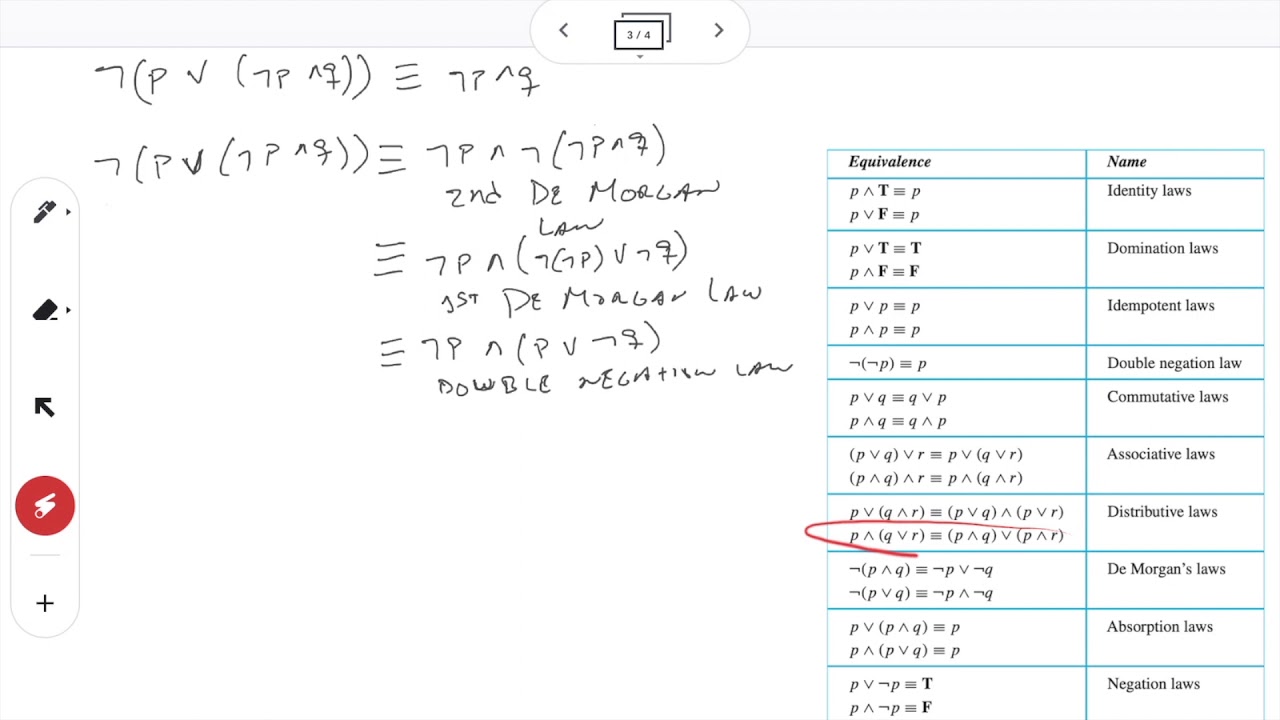 3 / 4
¬(p ∨ (¬p ∧q)) ≡ ¬p∧q
¬(p∨(¬p ∧q))≡ ¬p ∧ ¬(¬p∧q)
2nd DE MORGAN
LAW
≡ ¬p ∧(¬(¬p)∨¬q)
1ST DE MORGAN LAW
≡ ¬p ∧(p ∨ ¬q)
DOUBLE NEGATION LAW
Equivalence Name
p ∧ T ≡ p Identity laws
p ∨ F ≡ p
p ∨ T ≡ T Domination laws
p ∧ F ≡ F
p ∨ p ≡ p Idempotent laws
p ∧ p ≡ p
¬(¬p) ≡ p Double negation law
p ∨ q ≡ q ∨ p Commutative laws
p ∧ q ≡ q ∧ p
(p ∨ q) ∨ r ≡ p ∨ (q ∨ r) Associative laws
(p ∧ q) ∧ r ≡ p ∧ (q ∧ r)
p ∨ (q ∧ r) ≡ (p ∨ q) ∧ (p ∨ r) Distributive laws
p ∧ (q ∨ r) ≡ (p ∧ q) ∨ (p ∧ r)
¬(p ∧ q) ≡ ¬p ∨ ¬q De Morgan's laws
¬(p ∨ q) ≡ ¬p ∧ ¬q
p ∨ (p ∧ q) ≡ p Absorption laws
p ∧ (p ∨ q) ≡ p
p ∨ ¬p ≡ T Negation laws
p ∧ ¬p ≡ F